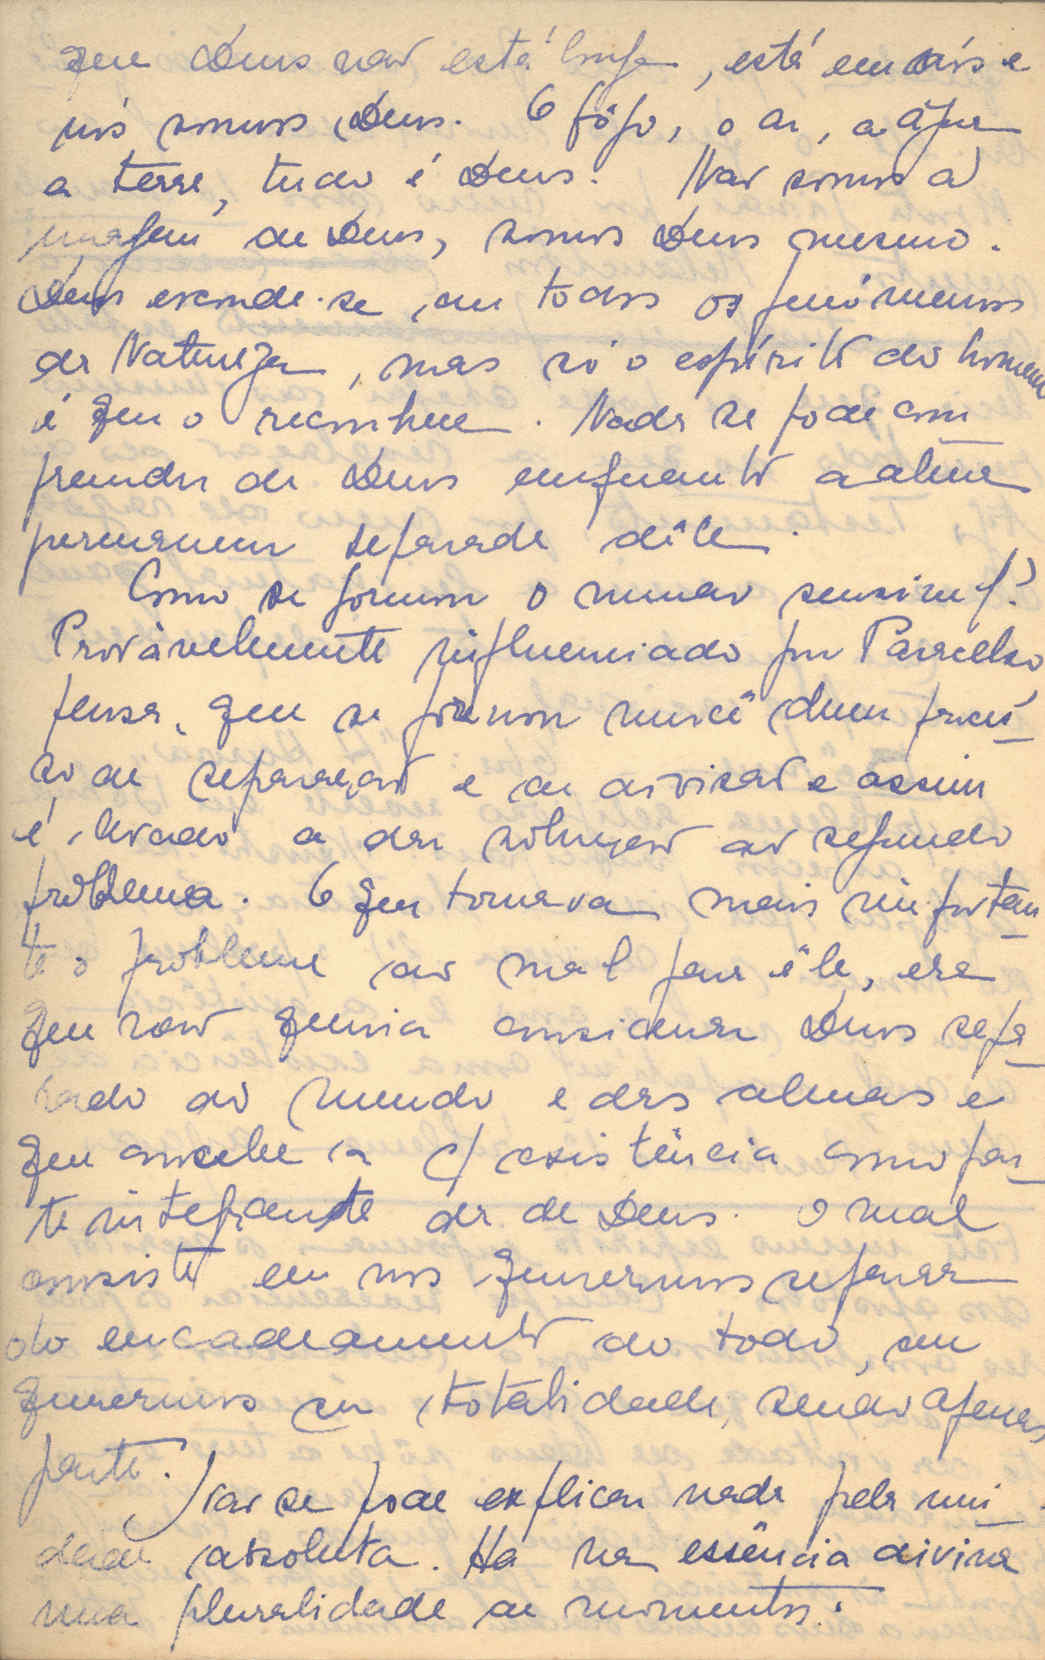 que Deus não está longe, está em nós e
nós somos Deus. O fôgo, o ar, a água
a terra, tudo é Deus. Não somos à
imagem de Deus, somos Deus mesmo.
Deus esconde-se em todos os fenómenos
da Natureza, mas só o espírito do homem
é que o reconhece. Nada se pode com
preender de Deus enquanto a alma
permanecer separada dêle.
Como se formou o mundo sensível?
Provàvelmente influenciado por Paracelso
pensa, que se formou mercê dum proces
so de separação e de divisão e assim
é levado a dar solução ao segundo
problema. O que tornava mais importan
te o problema do mal para êle, era
que não queria considerar Deus sepa
rado do mundo e das almas e
que concebe a c/ existência como par
te integrante da de Deus. O mal
consiste em nos querermos separar
do encadeamento do todo, em
querermos ser totalidade, sendo apenas
parte.
Não se pode explicar nada pela uni
dade absoluta. Há na essência divina
uma pluralidade de momentos.